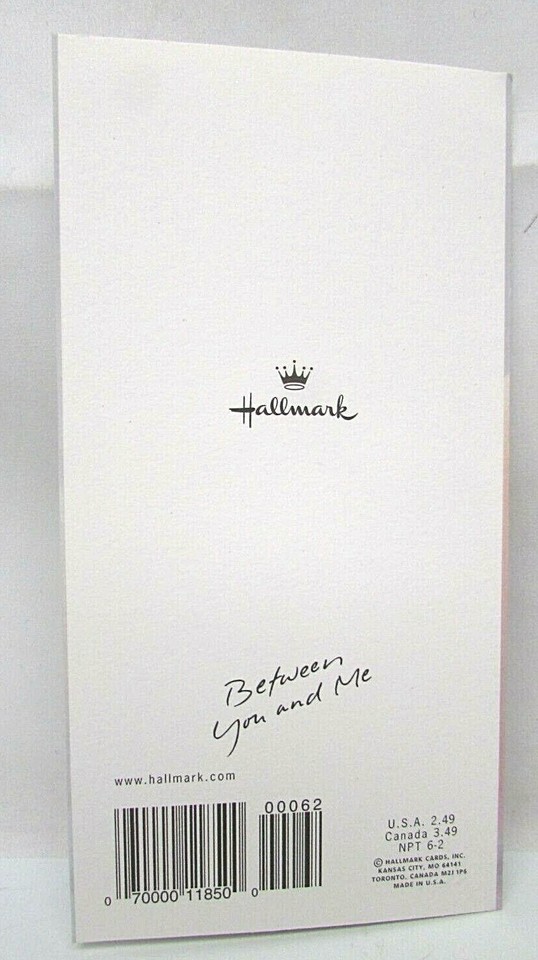 Hallmark
Between
You and Me
www.hallmark.com
00062
0 70000 11850 0
U.S.A. 2.49
Canada 3.49
NPT 6-2
© HALLMARK CARDS, INC.
KANSAS CITY, MO 64141
TORONTO, CANADA M2J 1P6
MADE IN U.S.A.